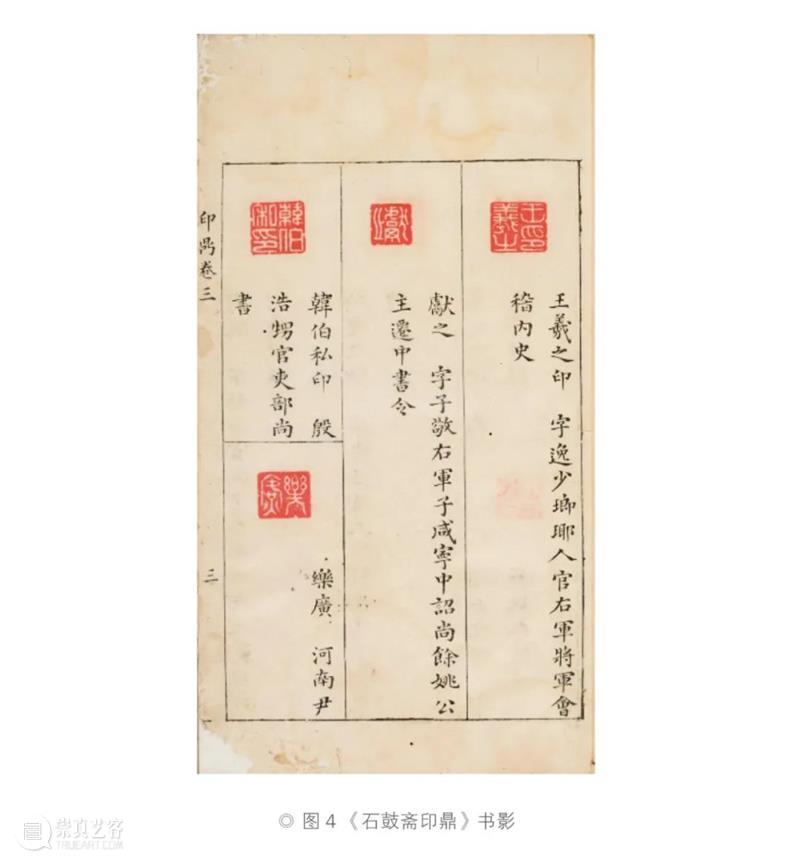 王羲之印　字逸少瑯琊人官右軍將軍會
稽內史
獻之　字子敬右軍子咸寧中詔尚餘姚公
主遷中書令
韓伯私印　殷
浩甥官吏部尚
書
樂廣　河南尹
印鼎卷三
三
王羲之印
獻之
韓伯私印
樂廣
◎ 图 4《石鼓斋印鼎》书影
崇真艺客
TRUEART.COM